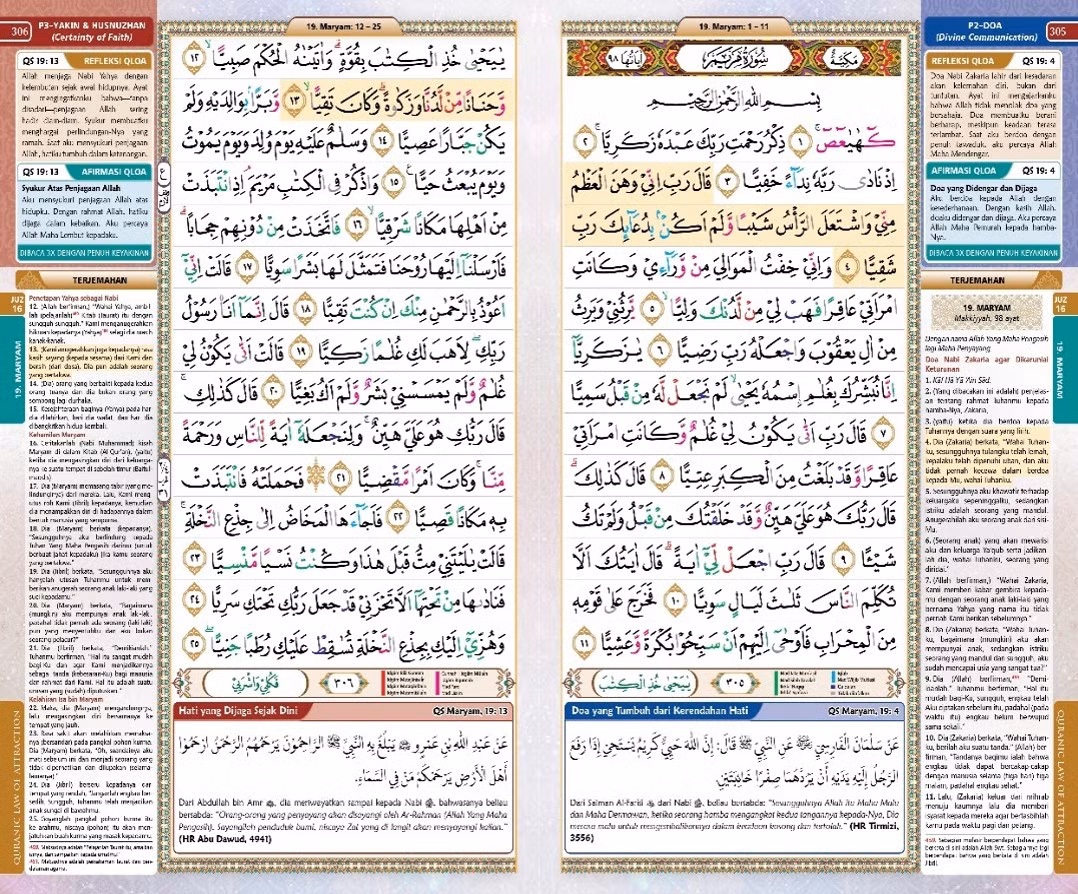 305
P2-DOA
(Divine Communication)
REFLEKSI QLOA QS 19: 4
Doa Nabi Zakaria lahir dari kesadaran
akan kelemahan diri, bukan dari
tuntutan. Ayat ini mengajarkanku
bahwa Allah tidak menolak doa yang
bersahaja. Doa membuatku berani
berharap, meskipun keadaan terasa
terlambat. Saat aku berdoa dengan
penuh tawaduk, aku percaya Allah
Maha Mendengar.
AFIRMASI QLOA QS 19: 4
Doa yang Didengar dan Dijaga
Aku berdoa kepada Allah dengan
kesederhanaan. Dengan kasih Allah,
doaku didengar dan dijaga. Aku percaya
Allah Maha Pemurah kepada hamba-
Nya.
DIBACA 3X DENGAN PENUH KEYAKINAN
TERJEMAHAN
JUZ
16
19. MARYAM
19. MARYAM
Makkiyyah, 98 ayat
Dengan nama Allah Yang Maha Pengasih
lagi Maha Penyayang
Doa Nabi Zakaria agar Dikaruniai
Keturunan
1. Kāf Hā Yā 'Ain Ṣād.
2. (Yang dibacakan ini adalah) penjelas-
an tentang rahmat Tuhanmu kepada
hamba-Nya, Zakaria,
3. (yaitu) ketika dia berdoa kepada
Tuhannya dengan suara yang lirih.
4. Dia (Zakaria) berkata, "Wahai Tuhan-
ku, sesungguhnya tulangku telah lemah,
kepalaku telah dipenuhi uban, dan aku
tidak pernah kecewa dalam berdoa
kepada-Mu, wahai Tuhanku.
5. Sesungguhnya aku khawatir terhadap
keluargaku sepeninggalku, sedangkan
istriku adalah seorang yang mandul.
Anugerahilah aku seorang anak dari sisi-
Mu.
6. (Seorang anak) yang akan mewarisi
aku dan keluarga Ya'qub serta jadikan-
lah dia, wahai Tuhanku, seorang yang
diridai."
7. (Allah berfirman,) "Wahai Zakaria,
Kami memberi kabar gembira kepada-
mu dengan seorang anak laki-laki yang
bernama Yahya yang nama itu tidak
pernah Kami berikan sebelumnya."
8. Dia (Zakaria) berkata, "Wahai Tuhan-
ku, bagaimana (mungkin) aku akan
mempunyai anak, sedangkan istriku
seorang yang mandul dan sungguh, aku
sudah mencapai usia yang sangat tua?"
9. Dia (Allah) berfirman, "Demi-
kianlah." Tuhanmu berfirman, "Hal itu
mudah bagi-Ku, sungguh, engkau telah
Aku ciptakan sebelum itu, padahal (pada
waktu itu) engkau belum berwujud
sama sekali."
10. Dia (Zakaria) berkata, "Wahai Tuhan-
ku, berilah aku suatu tanda." (Allah) ber-
firman, "Tandanya bagimu ialah bahwa
engkau tidak dapat bercakap-cakap
dengan manusia selama (tiga hari) tiga
malam, padahal engkau sehat."
11. Lalu, (Zakaria) keluar dari mihrab
menuju kaumnya lalu dia memberi
isyarat kepada mereka agar bertasbihlah
kamu pada waktu pagi dan petang.
QURANIC LAW OF ATTRACTION
19. Maryam: 1 – 11
مَكِّيَّة سُوْرَةُ مَرْيَمَ اٰيَاتُهَا ٩٨
بِسْمِ اللّٰهِ الرَّحْمٰنِ الرَّحِيْمِ
كۤهٰيٰعۤصۤ ۚ ١ ذِكْرُ رَحْمَتِ رَبِّكَ عَبْدَهٗ زَكَرِيَّا ۚ ٢
اِذْ نَادٰى رَبَّهٗ نِدَاۤءً خَفِيًّا ٣ قَالَ رَبِّ اِنِّيْ وَهَنَ الْعَظْمُ
مِنِّيْ وَاشْتَعَلَ الرَّأْسُ شَيْبًا وَّلَمْ اَكُنْۢ بِدُعَاۤىِٕكَ رَبِّ
شَقِيًّا ٤ وَاِنِّيْ خِفْتُ الْمَوَالِيَ مِنْ وَّرَاۤءِيْ وَكَانَتِ
امْرَاَتِيْ عَاقِرًا فَهَبْ لِيْ مِنْ لَّدُنْكَ وَلِيًّا ۙ ٥ يَّرِثُنِيْ وَيَرِثُ
مِنْ اٰلِ يَعْقُوْبَ وَاجْعَلْهُ رَبِّ رَضِيًّا ٦ يٰزَكَرِيَّآ
اِنَّا نُبَشِّرُكَ بِغُلٰمِ ࣙاسْمُهٗ يَحْيٰىۙ لَمْ نَجْعَلْ لَّهٗ مِنْ قَبْلُ سَمِيًّا
٧ قَالَ رَبِّ اَنّٰى يَكُوْنُ لِيْ غُلٰمٌ وَّكَانَتِ امْرَاَتِيْ
عَاقِرًا وَّقَدْ بَلَغْتُ مِنَ الْكِبَرِ عِتِيًّا ٨ قَالَ كَذٰلِكَۗ
قَالَ رَبُّكَ هُوَ عَلَيَّ هَيِّنٌ وَّقَدْ خَلَقْتُكَ مِنْ قَبْلُ وَلَمْ تَكُ
شَيْـًٔا ٩ قَالَ رَبِّ اجْعَلْ لِّيْٓ اٰيَةً ۗقَالَ اٰيَتُكَ اَلَّا
تُكَلِّمَ النَّاسَ ثَلٰثَ لَيَالٍ سَوِيًّا ١٠ فَخَرَجَ عَلٰى قَوْمِهٖ
مِنَ الْمِحْرَابِ فَاَوْحٰٓى اِلَيْهِمْ اَنْ سَبِّحُوْا بُكْرَةً وَّعَشِيًّا ١١
يٰيَحْيٰى خُذِ الْكِتٰبَ
٣٠٥
Doa yang Tumbuh dari Kerendahan Hati QS Maryam, 19: 4
عَنْ سَلْمَانَ الْفَارِسِيِّ ﷺ عَنِ النَّبِيِّ ﷺ قَالَ: إِنَّ اللهَ حَيِيٌّ كَرِيْمٌ يَسْتَحْيِيْ إِذَا رَفَعَ
الرَّجُلُ إِلَيْهِ يَدَيْهِ أَنْ يَرُدَّهُمَا صِفْرًا خَائِبَتَيْنِ.
Dari Salman Al-Farisi dari Nabi ﷺ, beliau bersabda: "Sesungguhnya Allah itu Maha Malu
dan Maha Dermawan, ketika seorang hamba mengangkat kedua tangannya kepada-Nya, Dia
merasa malu untuk mengembalikannya dalam keadaan kosong dan tertolak." (HR Tirmizi,
3556)
306
P3-YAKIN & HUSNUZHAN
(Certainty of Faith)
QS 19: 13 REFLEKSI QLOA
Allah menjaga Nabi Yahya dengan
kelembutan sejak awal hidupnya. Ayat
ini mengingatkanku bahwa—tanpa
disadari—penjagaan Allah sering
hadir diam-diam. Syukur membuatku
menghargai perlindungan-Nya yang
ramah. Saat aku mensyukuri penjagaan
Allah, hatiku tumbuh dalam ketenangan.
QS 19: 13 AFIRMASI QLOA
Syukur Atas Penjagaan Allah
Aku mensyukuri penjagaan Allah atas
hidupku. Dengan rahmat Allah, hatiku
dijaga dalam kebaikan. Aku percaya
Allah Maha Lembut kepadaku.
DIBACA 3X DENGAN PENUH KEYAKINAN
TERJEMAHAN
JUZ
16
19. MARYAM
Penetapan Yahya sebagai Nabi
12. (Allah berfirman,) "Wahai Yahya, ambil-
lah (pelajarilah) Kitab (Taurat) itu dengan
sungguh-sungguh." Kami menganugerahkan
hikmah kepadanya (Yahya) selagi dia masih
kanak-kanak.
13. (Kami anugerahkan juga kepadanya) rasa
kasih sayang (kepada sesama) dari Kami dan
bersih (dari dosa). Dia pun adalah seorang
yang bertakwa.
14. (Dia) orang yang berbakti kepada kedua
orang tuanya dan dia bukan orang yang
sombong lagi durhaka.
15. Kesejahteraan baginya (Yahya) pada hari
dia dilahirkan, hari dia wafat, dan hari dia
dibangkitkan hidup kembali.
Kehamilan Maryam
16. Ceritakanlah (Nabi Muhammad) kisah
Maryam di dalam Kitab (Al-Qur'an), (yaitu)
ketika dia mengasingkan diri dari keluarga-
nya ke suatu tempat di sebelah timur (Baitul-
maqdis)
17. Dia (Maryam) memasang tabir (yang me-
lindunginya) dari mereka. Lalu, Kami meng-
utus roh Kami (Jibril) kepadanya, kemudian
dia menampakkan diri di hadapannya dalam
bentuk manusia yang sempurna.
18. Dia (Maryam) berkata (kepadanya),
"Sesungguhnya aku berlindung kepada
Tuhan Yang Maha Pengasih darimu (untuk
berbuat jahat kepadaku) jika kamu seorang
yang bertakwa."
19. Dia (Jibril) berkata, "Sesungguhnya aku
hanyalah utusan Tuhanmu untuk mem-
berikan anugerah seorang anak laki-laki yang
suci kepadamu."
20. Dia (Maryam) berkata, "Bagaimana
(mungkin) aku mempunyai anak laki-laki,
padahal tidak pernah ada seorang (laki-laki)
pun yang menyentuhku dan aku bukan
seorang pelacur?"
21. Dia (Jibril) berkata, "Demikianlah."
Tuhanmu berfirman, "Hal itu sangat mudah
bagi-Ku dan agar Kami menjadikannya
sebagai tanda (kebesaran-Ku) bagi manusia
dan rahmat dari Kami. Hal itu adalah suatu
urusan yang (sudah) diputuskan."
Kelahiran Isa bin Maryam
22. Maka, dia (Maryam) mengandungnya,
lalu mengasingkan diri bersamanya ke
tempat yang jauh.
23. Rasa sakit akan melahirkan memaksa-
nya (bersandar) pada pangkal pohon kurma.
Dia (Maryam) berkata, "Oh, seandainya aku
mati sebelum ini dan menjadi seorang yang
tidak diperhatikan dan dilupakan (selama-
lamanya)."
24. Dia (Jibril) berseru kepadanya dari
tempat yang rendah, "Janganlah engkau ber-
sedih. Sungguh, Tuhanmu telah menjadikan
anak sungai di bawahmu.
25. Goyanglah pangkal pohon kurma itu
ke arahmu, niscaya (pohon) itu akan men-
jatuhkan buah kurma yang masak kepadamu.
QURANIC LAW OF ATTRACTION
19. Maryam: 12 – 25
يٰيَحْيٰى خُذِ الْكِتٰبَ بِقُوَّةٍ ۗوَاٰتَيْنٰهُ الْحُكْمَ صَبِيًّاۙ ١٢
وَّحَنَانًا مِّنْ لَّدُنَّا وَزَكٰوةً ۗوَكَانَ تَقِيًّا ۙ ١٣ وَّبَرًّاۢ بِوَالِدَيْهِ وَلَمْ
يَكُنْ جَبَّارًا عَصِيًّا ١٤ وَسَلٰمٌ عَلَيْهِ يَوْمَ وُلِدَ وَيَوْمَ يَمُوْتُ
وَيَوْمَ يُبْعَثُ حَيًّا ࣖ ١٥ وَاذْكُرْ فِى الْكِتٰبِ مَرْيَمَۘ اِذِ انْتَبَذَتْ
مِنْ اَهْلِهَا مَكَانًا شَرْقِيًّا ۙ ١٦ فَاتَّخَذَتْ مِنْ دُوْنِهِمْ حِجَابًاۗ
فَاَرْسَلْنَآ اِلَيْهَا رُوْحَنَا فَتَمَثَّلَ لَهَا بَشَرًا سَوِيًّا ١٧ قَالَتْ اِنِّيْٓ
اَعُوْذُ بِالرَّحْمٰنِ مِنْكَ اِنْ كُنْتَ تَقِيًّا ١٨ قَالَ اِنَّمَآ اَنَا۠ رَسُوْلُ
رَبِّكِۖ لِاَهَبَ لَكِ غُلٰمًا زَكِيًّا ١٩ قَالَتْ اَنّٰى يَكُوْنُ لِيْ
غُلٰمٌ وَّلَمْ يَمْسَسْنِيْ بَشَرٌ وَّلَمْ اَكُ بَغِيًّا ٢٠ قَالَ كَذٰلِكِۚ
قَالَ رَبُّكِ هُوَ عَلَيَّ هَيِّنٌۚ وَلِنَجْعَلَهٗٓ اٰيَةً لِّلنَّاسِ وَرَحْمَةً
مِّنَّاۚ وَكَانَ اَمْرًا مَّقْضِيًّا ٢١ ۞ فَحَمَلَتْهُ فَانْتَبَذَتْ
بِهٖ مَكَانًا قَصِيًّا ٢٢ فَاَجَاۤءَهَا الْمَخَاضُ اِلٰى جِذْعِ النَّخْلَةِۚ
قَالَتْ يٰلَيْتَنِيْ مِتُّ قَبْلَ هٰذَا وَكُنْتُ نَسْيًا مَّنْسِيًّا ٢٣
فَنَادٰىهَا مِنْ تَحْتِهَآ اَلَّا تَحْزَنِيْ قَدْ جَعَلَ رَبُّكِ تَحْتَكِ سَرِيًّا ٢٤
وَهُزِّيْٓ اِلَيْكِ بِجِذْعِ النَّخْلَةِ تُسٰقِطْ عَلَيْكِ رُطَبًا جَنِيًّاۖ ٢٥
فَكُلِيْ وَاشْرَبِيْ
٣٠٦
Hati yang Dijaga Sejak Dini QS Maryam, 19: 13
عَنْ عَبْدِ اللهِ بْنِ عَمْرٍو ﷺ يَبْلُغُ بِهِ النَّبِيَّ ﷺ الرَّاحِمُوْنَ يَرْحَمُهُمُ الرَّحْمٰنُ ارْحَمُوْا
أَهْلَ الْأَرْضِ يَرْحَمْكُمْ مَنْ فِي السَّمَاءِ.
Dari Abdullah bin Amr, dia meriwayatkan sampai kepada Nabi ﷺ, bahwasanya beliau
bersabda: "Orang-orang yang penyayang akan disayangi oleh Ar-Rahman (Allah Yang Maha
Pengasih). Sayangilah penduduk bumi, niscaya Zat yang di langit akan menyayangi kalian."
(HR Abu Dawud, 4941)